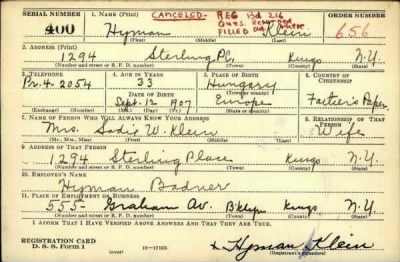 SERIAL NUMBER 1. NAME (Print) CANCELED. REG Bd 216
400 Hyman Klein ORDER NUMBER 656
(First) (Middle) (Last) FILLED
2. ADDRESS (Print)
1294 Sterling Pl. Kings N.Y.
(Number and street or R. F. D. number) (Town) (County) (State)
3. TELEPHONE 4. AGE IN YEARS 5. PLACE OF BIRTH 6. COUNTRY OF CITIZENSHIP
Pr. 4-2054 33 Hungary
DATE OF BIRTH (Town or county)
Sept. 12 1907 Europe Father's Paper
(Exchange) (Number) (Mo.) (Day) (Yr.) (State or country)
7. NAME OF PERSON WHO WILL ALWAYS KNOW YOUR ADDRESS 8. RELATIONSHIP OF THAT PERSON
Mrs. Sadie W. Klein Wife
(Mr., Mrs., Miss) (First) (Middle) (Last)
9. ADDRESS OF THAT PERSON
1294 Sterling Place Kings N.Y.
(Number and street or R. F. D. number) (Town) (County) (State)
10. EMPLOYER'S NAME
Hyman Badner
11. PLACE OF EMPLOYMENT OR BUSINESS
555- Graham Av. B'klyn Kings N.Y.
(Number and street or R. F. D. number) (Town) (County) (State)
I AFFIRM THAT I HAVE VERIFIED ABOVE ANSWERS AND THAT THEY ARE TRUE.
REGISTRATION CARD
D. S. S. Form 1 (over) 16—17105 Hyman Klein
(Registrant's signature)